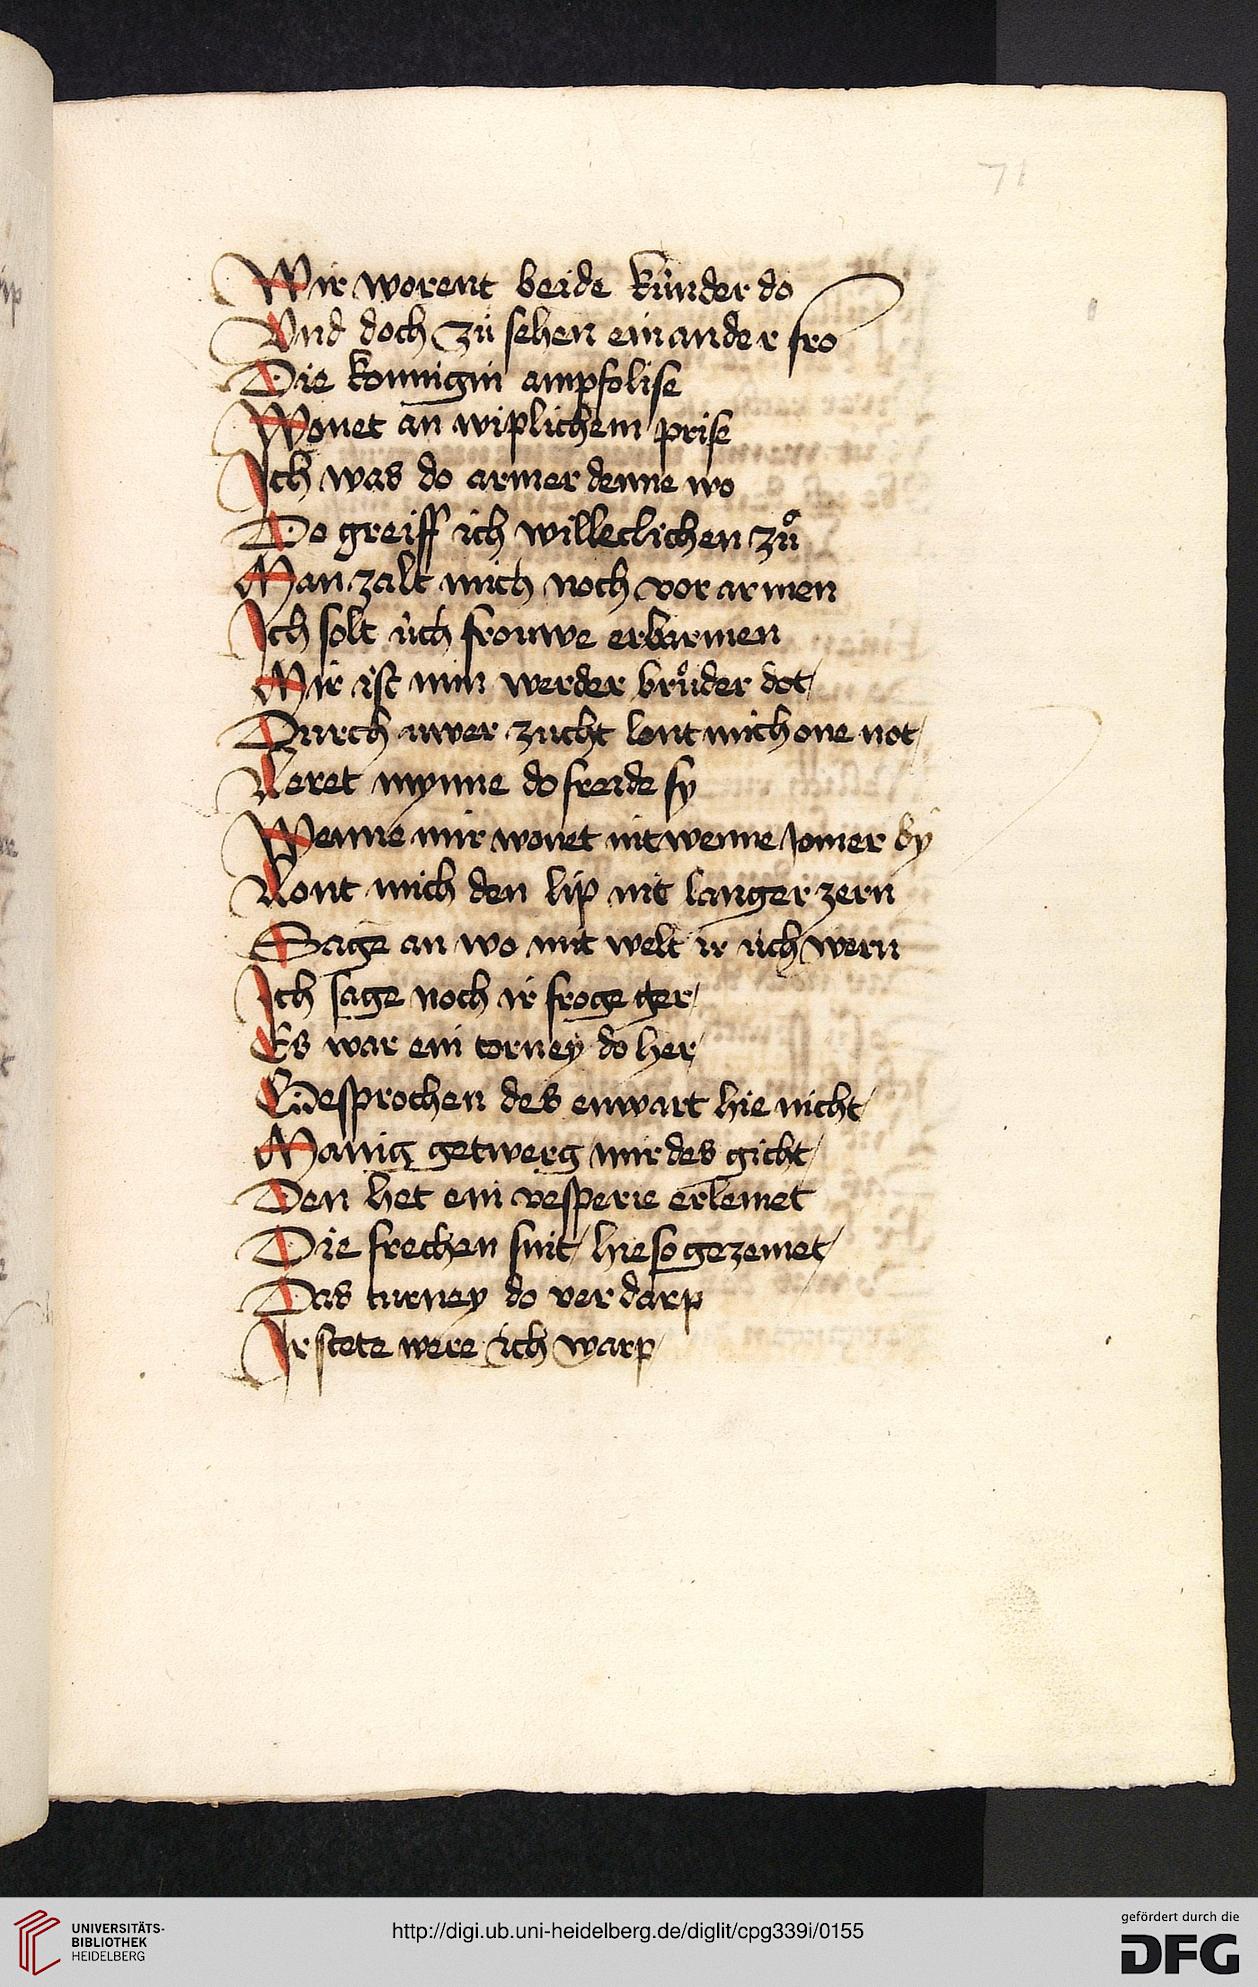 71
Wir worent beide kúnder do
Vnd doch zú sehen einander fro
Die konnigin ampfolise
Wonet an wiplichem prise
Ich was do armer denne wo
Do greiff ich willeclichen zů
Man zalt mich noch vor armen
Ich solt úch frouwe erbarmen
Mir ist min werder brůder dot
Durch uwer zucht lont mich one not
Keret mynne do freide sy
Wenne mir wonet nit wenne jomer by
Lont mich den lip nit langer zern
Sage an wo mit welt ir úch wern
Ich sage noch ir froge ger
Es war ein torney do her
Gesprochen des enwart hie nicht
Manig getwerg mir des gicht
Den het ein vesperie erlemet
Die frechen suit hie so gezemet
Das turney do ver darp
Ir stete were ich warp
UNIVERSITÄTS-
BIBLIOTHEK
HEIDELBERG
http://digi.ub.uni-heidelberg.de/diglit/cpg339i/0155
gefördert durch die
DFG